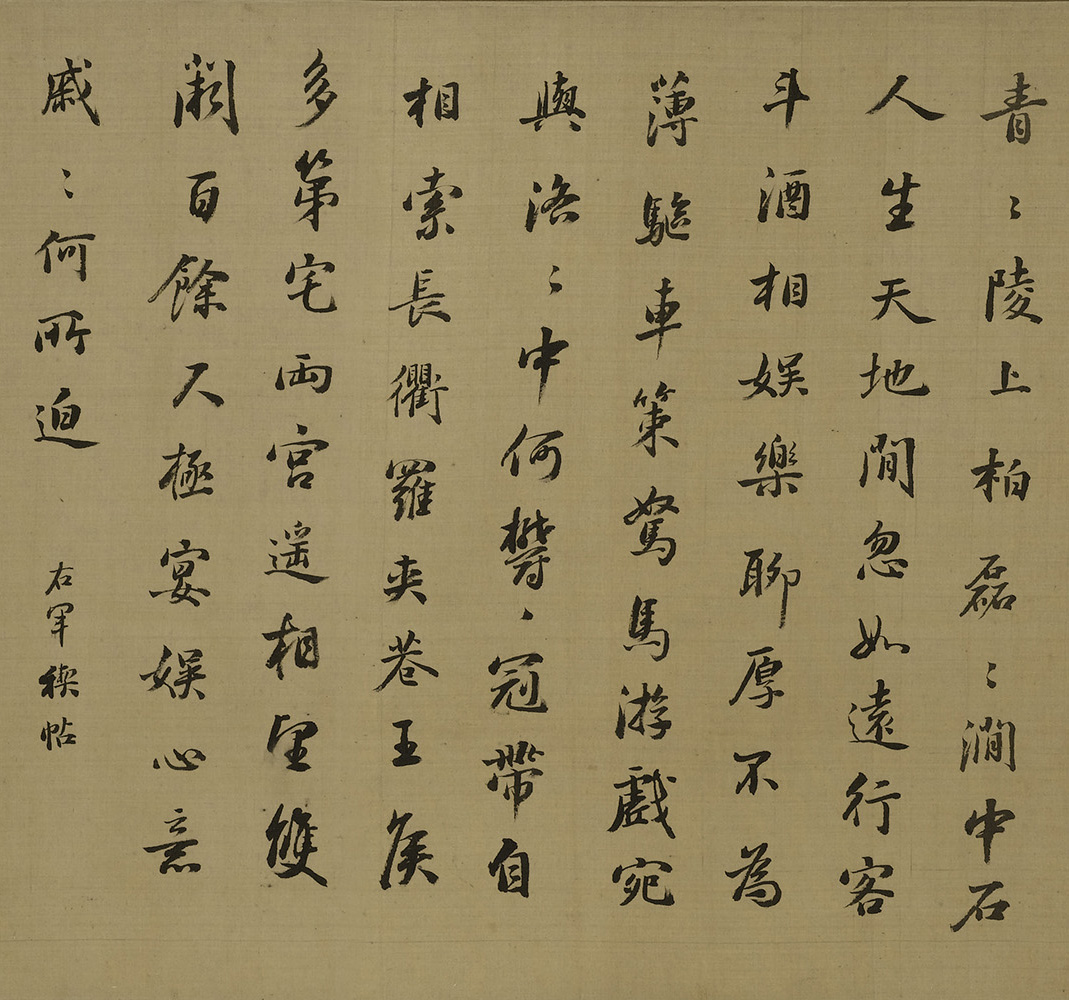 青〻陵上柏磊〻澗中石
人生天地間忽如遠行客
斗酒相娱樂聊厚不為
薄驅車策駑馬游戲宛
與洛〻中何欝〻冠帶自
相索長衢羅夾巷王侯
多第宅兩宮遥相望雙
闕百餘尺極宴娱心意
戚〻何所迫
右軍禊帖